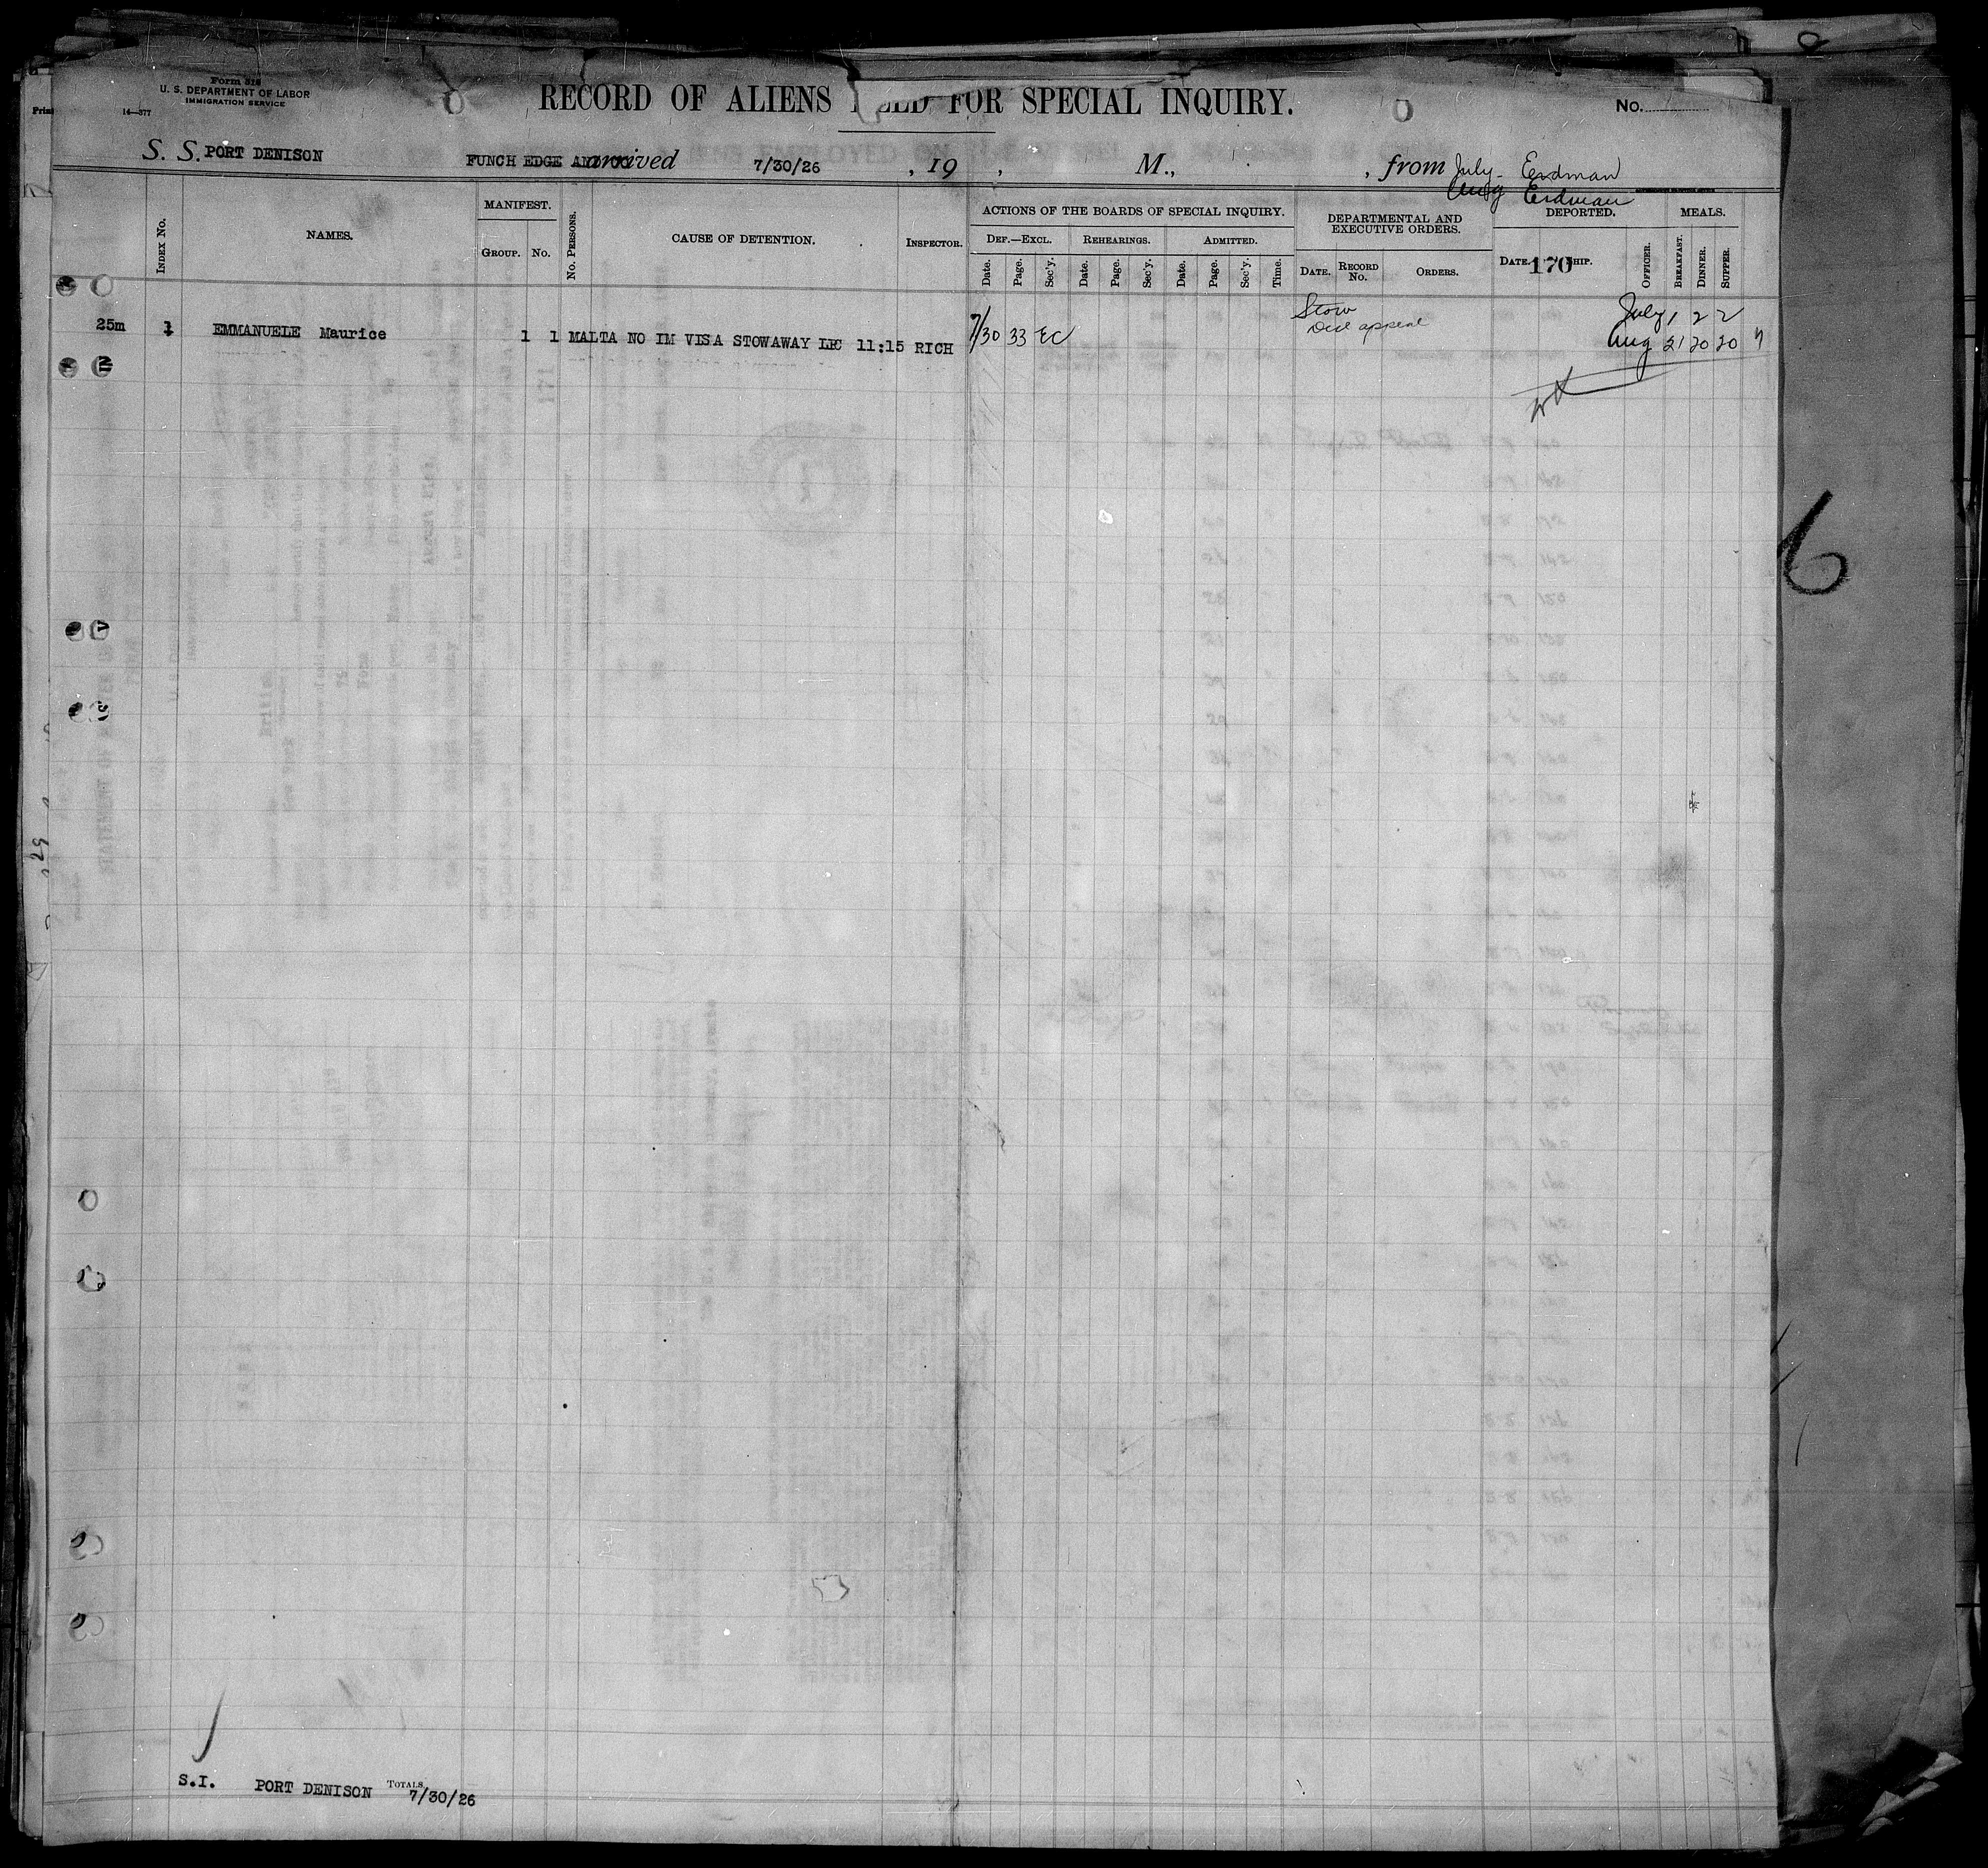 Form 518
U. S. DEPARTMENT OF LABOR
IMMIGRATION SERVICE
14—377
RECORD OF ALIENS HELD FOR SPECIAL INQUIRY.
No.
S. S. PORT DENISON FUNCH EDGE AND CO arrived 7/30/26, 19 , M., , from July - Erdman
Aug Erdman
INDEX No. NAMES. MANIFEST. GROUP. No. No. PERSONS. CAUSE OF DETENTION. INSPECTOR.
ACTIONS OF THE BOARDS OF SPECIAL INQUIRY.
DEF.—EXCL. REHEARINGS. ADMITTED.
Date. Page. Sec'y. Date. Page. Sec'y. Date. Page. Sec'y. Time.
DEPARTMENTAL AND EXECUTIVE ORDERS.
DATE. RECORD No. ORDERS.
DEPORTED.
DATE. 170 SHIP.
OFFICER.
MEALS.
BREAKFAST. DINNER. SUPPER.
25m 1 EMMANUELE Maurice 1 1 MALTA NO IM VISA STOWAWAY LPC 11:15 RICH 7/30 33 EC
Stow
appeal
July 1 2 2
Aug 21 20 20
6
29
S.I. PORT DENISON TOTALS 7/30/26